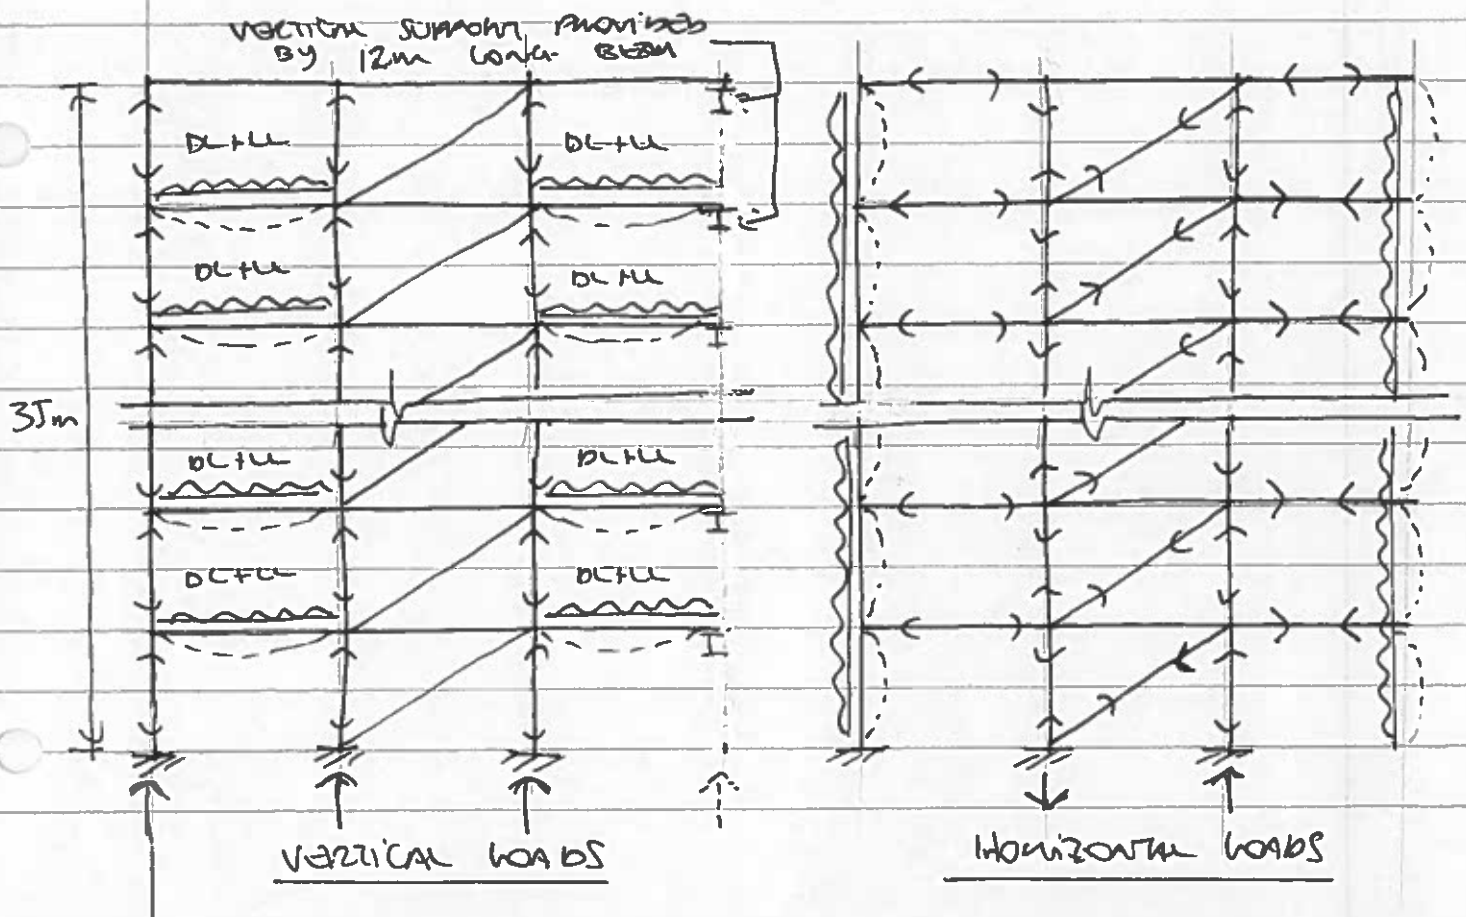 VERTICAL SUPPORT PROVIDED
BY 12m LONG BEAM
DL+LL
DL+LL
DL+LL
DL+LL
35m
DL+LL
DL+LL
DL+LL
DL+LL
VERTICAL LOADS
HORIZONTAL LOADS